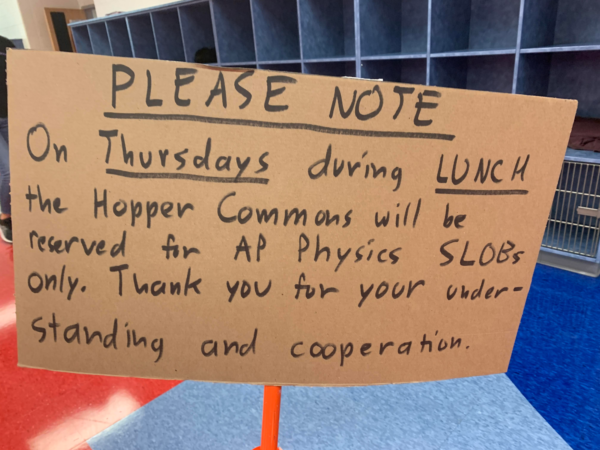 PLEASE NOTE
On Thursdays during LUNCH
the Hopper Commons will be
reserved for AP Physics SLOBs
only. Thank you for your under-
standing and cooperation.